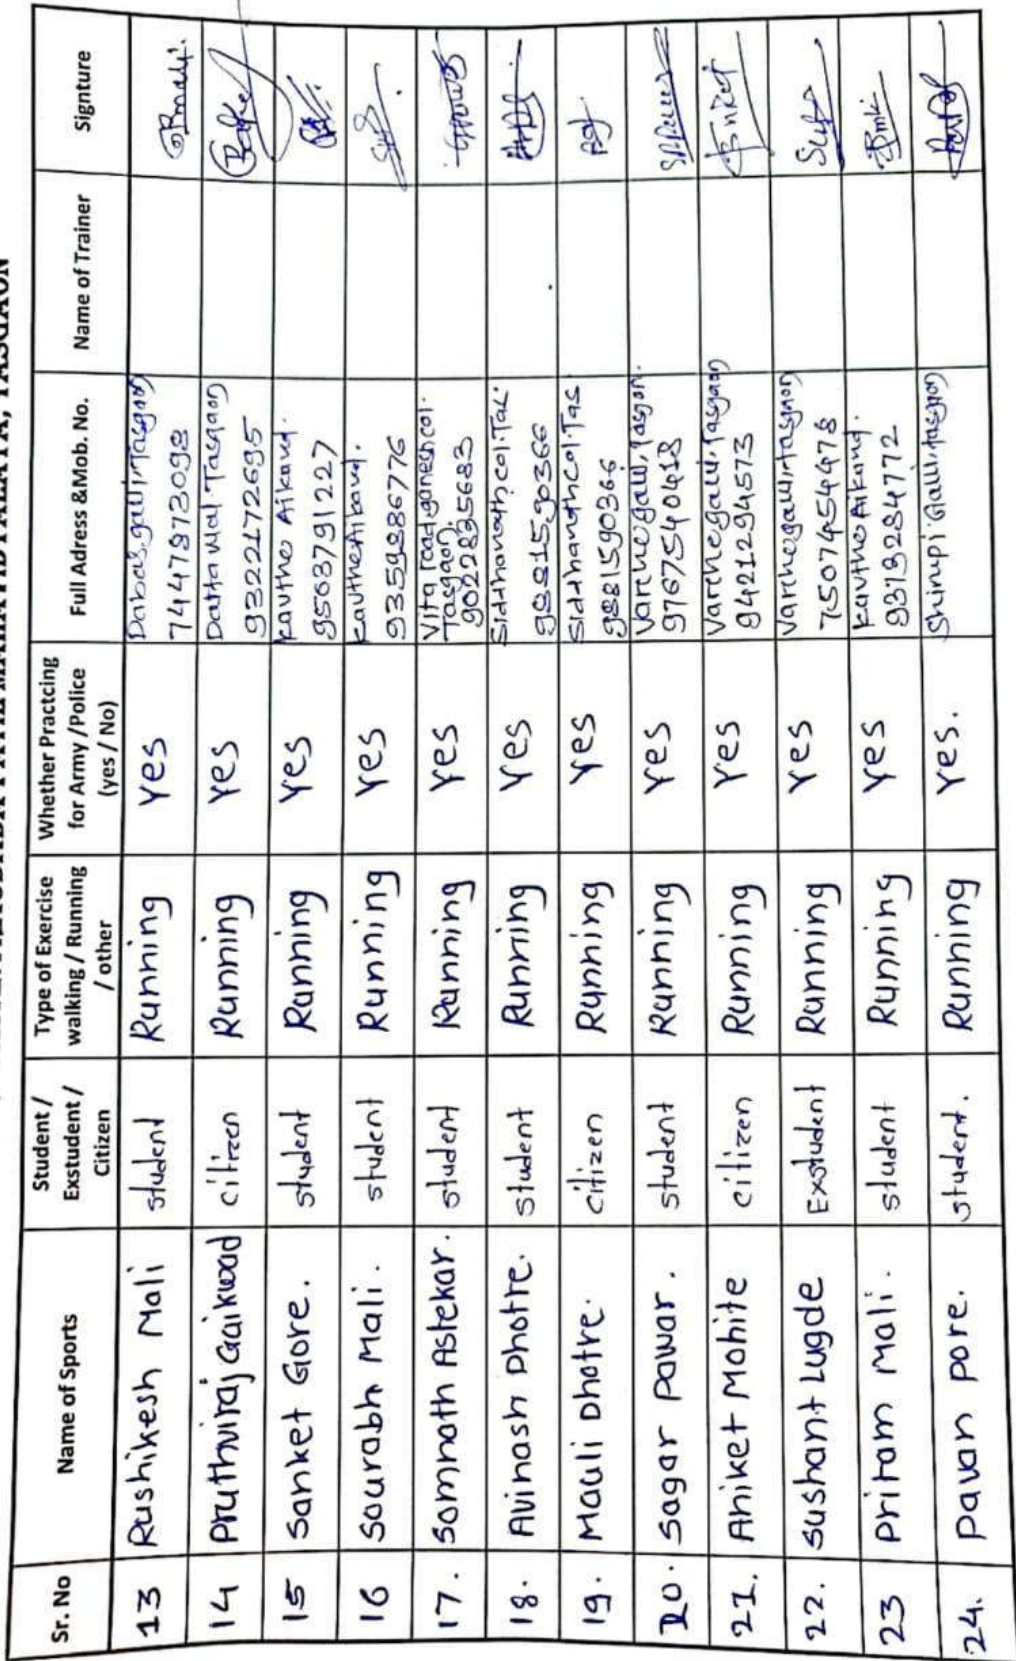 Sr. No | Name of Sports | Student / Exstudent / Citizen | Type of Exercise walking / Running / other | Whether Practcing for Army /Police (yes / No) | Full Adress &Mob. No. | Name of Trainer | Signture
13 | Rushikesh Mali | student | Running | Yes | Dabas.galli,Tasgaon 7447873098
14 | Pruthviraj Gaikwad | citizen | Running | Yes | Datta Mal Tasgaon 9322172695
15 | Sanket Gore. | student | Running | Yes | kavthe Aikand. 9563791227
16 | Sourabh Mali. | student | Running | Yes | kavthe Aikand. 9359886776
17. | Somnath Astekar. | student | Running | Yes | Vita road,ganesh col. Tasgaon. 9022835683
18. | Avinash Dhotre. | student | Running | Yes | Siddhanath.col.Tas. 9881590366
19. | Mauli Dhotre. | citizen | Running | Yes | Siddhanath Col.Tas. 9881590366
20. | Sagar Pawar. | student | Running | Yes | Varchegalli, Tasgon. 9767540418
21. | Aniket Mohite | citizen | Running | Yes | Varchegalli, Tasgaon 9421294573
22. | Sushant Lugde | Exstudent | Running | Yes | Varchegalli,tasgaon 7507454478
23 | Pritam Mali. | student | Running | Yes | kavthe Aikand. 9373284772
24. | Pavan pore. | student. | Running | Yes. | Shimpi Galli,tasgaon